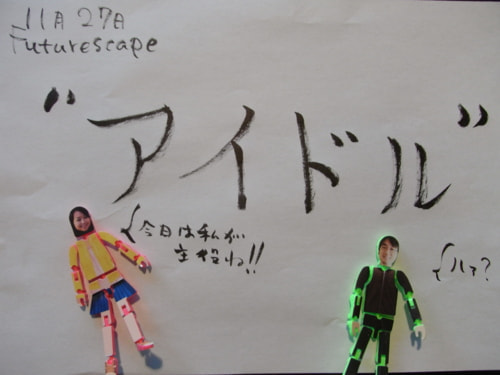 11月27日
Futurescape
"アイドル"
今日は私が
主役ね!!
ハァ?